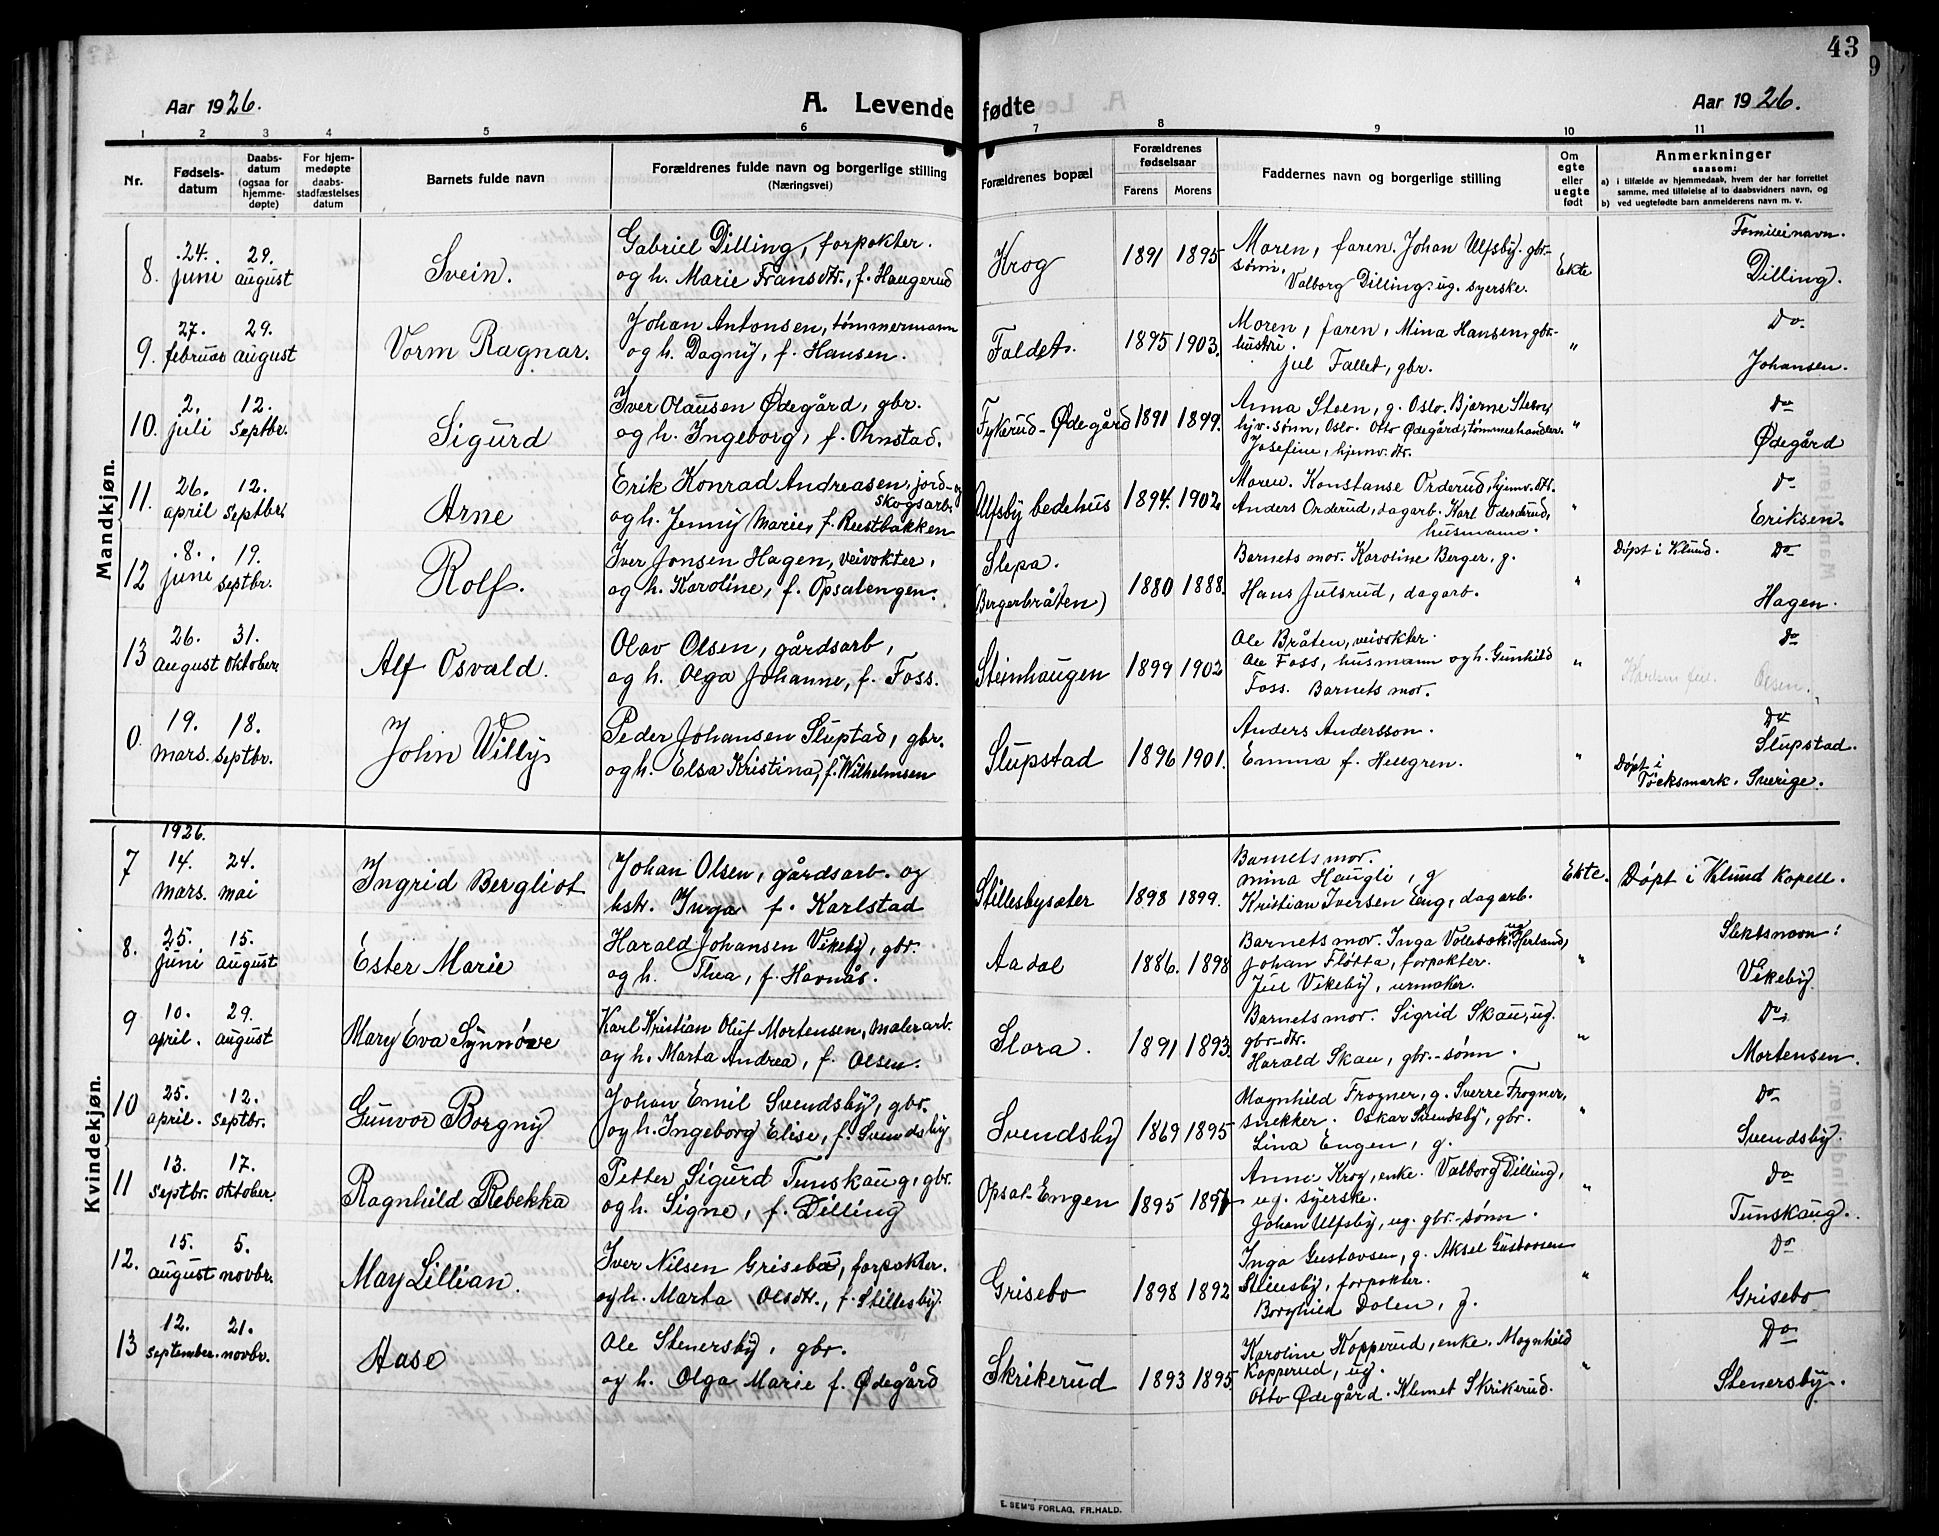 43
Aar 1926.
A. Levende fødte
Aar 1926.
1 2 3 4 5 6 7 8 9 10 11
Nr.
Fødsels-
datum
Daabs-
datum
(ogsaa for
hjemme-
døpte)
For hjem-
medøpte
daabs-
stadfæstelses
datum
Barnets fulde navn
Forældrenes fulde navn og borgerlige stilling
(Næringsvei)
Forældrenes bopæl
Forældrenes
fødselsaar
Farens Morens
Faddernes navn og borgerlige stilling
Om
egte
eller
uegte
født
Anmerkninger
saasom:
a) i tilfælde av hjemmedaab, hvem der har forrettet
samme, med tilføielse af to daabsvidners navn, og
b) ved uegtefødte barn anmelderens navn m. v.
Mandkjøn.
8. 24. juni 29. august
Svein.
Gabriel Dilling, forpakter.
og h. Marie Fransdtr., f. Haugerud
Krog
1891 1895
Moren, faren. Johan Ulfsby. gbr-
sønn.
Valborg Dilling. ug. syerske.
Ekte
Familienavn.
Dilling.
9. 27. februar 29. august
Vorm Ragnar.
Johan Antonsen, tømmermann
og h. Dagny, f. Hansen.
Faldet.
1895 1903.
Moren, faren, Mina Hansen, gbr-
hustru.
Jul Fallet, gbr.
"
Do
Johansen.
10. 2. juli 12. Septbr.
Sigurd
Iver Olausen Ødegård, gbr.
og h. Ingeborg, f. Ohnstad.
Fykerud-Ødegård
1891 1899.
Anna Steen, g. Oslo. Bjarne Steen,
hjv. sønn, Oslo. Otto Ødegård, tømmerhandler.
Josefine, hjemv. dtr.
"
Do
Ødegård
11. 26. april 12. Septbr.
Arne
Erik Konrad Andreasen, jord- og
skogsarb.
og h. Jenny Marie, f. Rustbakken
Ulfsby bedehus
1894. 1902
Moren. Konstanse Orderud, hjemv. dtr.
Anders Orderud, dagarb. Karl Oderderud,
husmann.
"
Do
Eriksen.
12 8. juni 19. septbr.
Rolf.
Iver Jonsen Hagen, veivokter,
og h. Karoline, f. Opsalengen.
Slepa.
(Bergerbråten)
1880 1888.
Barnets mor. Karoline Berger, g.
Hans Julsrud, dagarb.
"
Døpt i Klund. Do
Hagen.
13 26. august 31. oktober.
Alf Osvald.
Olav Olsen, gårdsarb,
og h. Olga Johanne, f. Foss.
Steinhaugen
1899 1902
Ole Bråten, veivokter.
Ole Foss, husmann og h. Gunhild
Foss. Barnets mor.
"
Do
Olsen.
0 19. mars. 18. septbr.
John Willy
Peder Johansen Slupstad, gbr.
og h. Elsa Kristina, f. Wilhelmsen
Slupstad
1896 1901.
Anders Andersson.
Emma f. Hellgren.
"
Do
Slupstad.
Døpt i
Töcksmark. Sverige.
Kvindekjøn.
1926.
7 14. mars. 24. mai
Ingrid Bergliot
Johan Olsen, gårdsarb. og
hstr. Inga f. Karlstad
Stillesbysæter
1898 1899.
Barnets mor.
mina Haugli, g
Kristian Iversen Eng, dagarb.
Ekte.
Døpt i Klund kapell.
8. 25. juni 15. august
Ester Marie
Harald Johansen Vikeby, gbr.
og h. Thea, f. Havnås.
Aadal
1886. 1898
Barnets mor. Inga Vollebæk, ug Herland,
Johan Fløtta, forpakter.
Jul Vikeby, urmaker.
"
Slektsnavn:
Vikeby
9 10. april. 29. august
Mary Eva Synnöve
Karl Kristian Oluf Mortensen, malerarb.
og h. Marta Andrea, f. Olsen.
Slora.
1891 1893.
Barnets mor. Sigrid Skau, ug.
gbr-dtr.
Harald Skau, gbr.-sønn.
"
Do
Mortensen.
10 25. april. 12. septbr.
Gunvor Borgny
Johan Emil Svendsby, gbr.
og h. Ingeborg Elise, f. Svendsby
Svendsby
1869 1895
Magnhild Frogner, g. Sverre Frogner,
snekker. Oskar Svendsby, gbr.
Lina Engen, g.
"
Do
Svendsby.
11 13. septbr. 17. oktober.
Ragnhild Rebekka
Petter Sigurd Tunskaug, gbr.
og h. Signe, f. Dilling
Opsal-Engen
1895
Anne Krog, enke. Valborg Dilling,
ug. syerske.
Johan Ulfsby, ug. gbr.-sønn.
"
Do
Tunskaug.
12. 15. august 5. novbr.
May Lillian.
Iver Nilsen Grisebo, forpakter.
og h. Marta Olsdtr., f. Stillesby.
Grisebo
1898 1892
Inga Gustavsen, g. Aksel Gustavsen
Stillesby, forpakter.
Borghild Dolen, g.
"
Do
Grisebo
13 12. september. 21. novbr.
Aase
Ole Stenersby, gbr.
og h. Olga Marie f. Ødegård
Skrikerud
1893 1895
Karoline Kopperud, enke. Magnhild
Kopperud, ug.
Otto Ødegård. Klemet Skrikerud.
"
Do
Stenersby.
E. SEM'S FORLAG, FR.HALD.